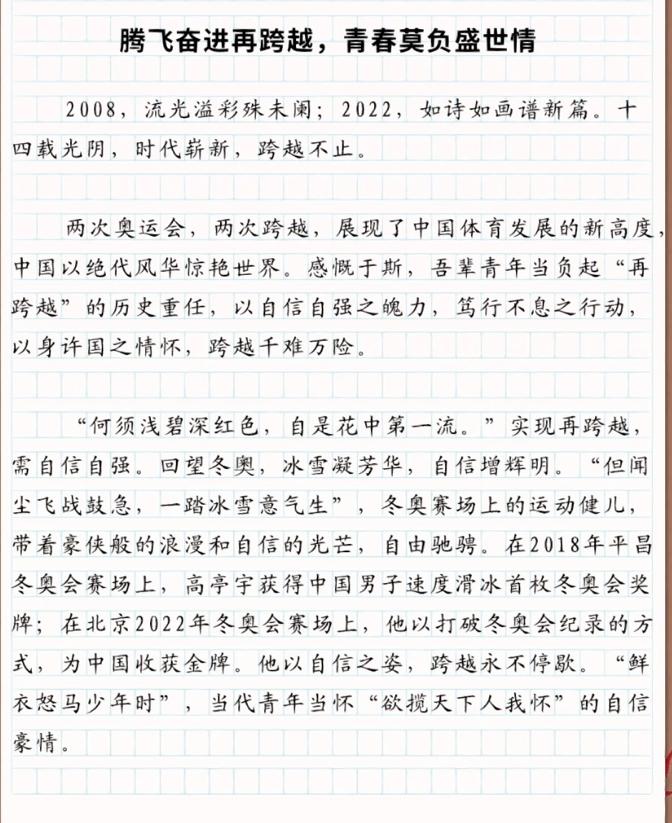 腾飞奋进再跨越，青春莫负盛世情
2008，流光溢彩殊未阑；2022，如诗如画谱新篇。十
四载光阴，时代崭新，跨越不止。
两次奥运会，两次跨越，展现了中国体育发展的新高度，
中国以绝代风华惊艳世界。感慨于斯，吾辈青年当负起“再
跨越”的历史重任，以自信自强之魄力，笃行不息之行动，
以身许国之情怀，跨越千难万险。
“何须浅碧深红色，自是花中第一流。”实现再跨越，
需自信自强。回望冬奥，冰雪凝芳华，自信增辉明。“但闻
尘飞战鼓急，一踏冰雪意气生”，冬奥赛场上的运动健儿，
带着豪侠般的浪漫和自信的光芒，自由驰骋。在2018年平昌
冬奥会赛场上，高亭宇获得中国男子速度滑冰首枚冬奥会奖
牌；在北京2022年冬奥会赛场上，他以打破冬奥会纪录的方
式，为中国收获金牌。他以自信之姿，跨越永不停歇。“鲜
衣怒马少年时”，当代青年当怀“欲揽天下人我怀”的自信
豪情。